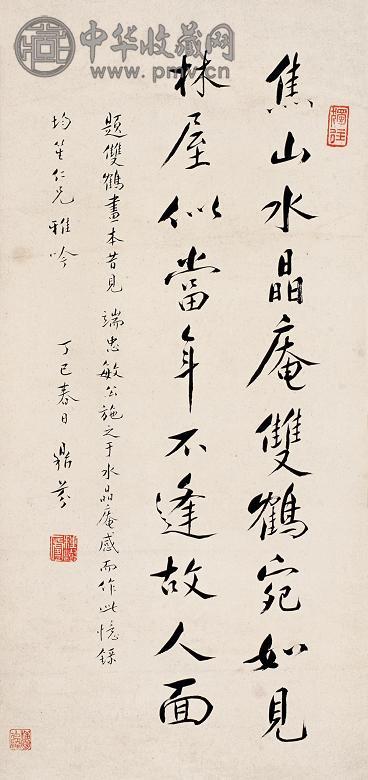 焦山水晶庵雙鶴宛如見
林屋似當年不逢故人面
題雙鶴畫本昔見 端忠敏公施之于水晶庵感而作此憶錄
均笙仁兄雅吟
丁巳春日 鼎芬
中华收藏网